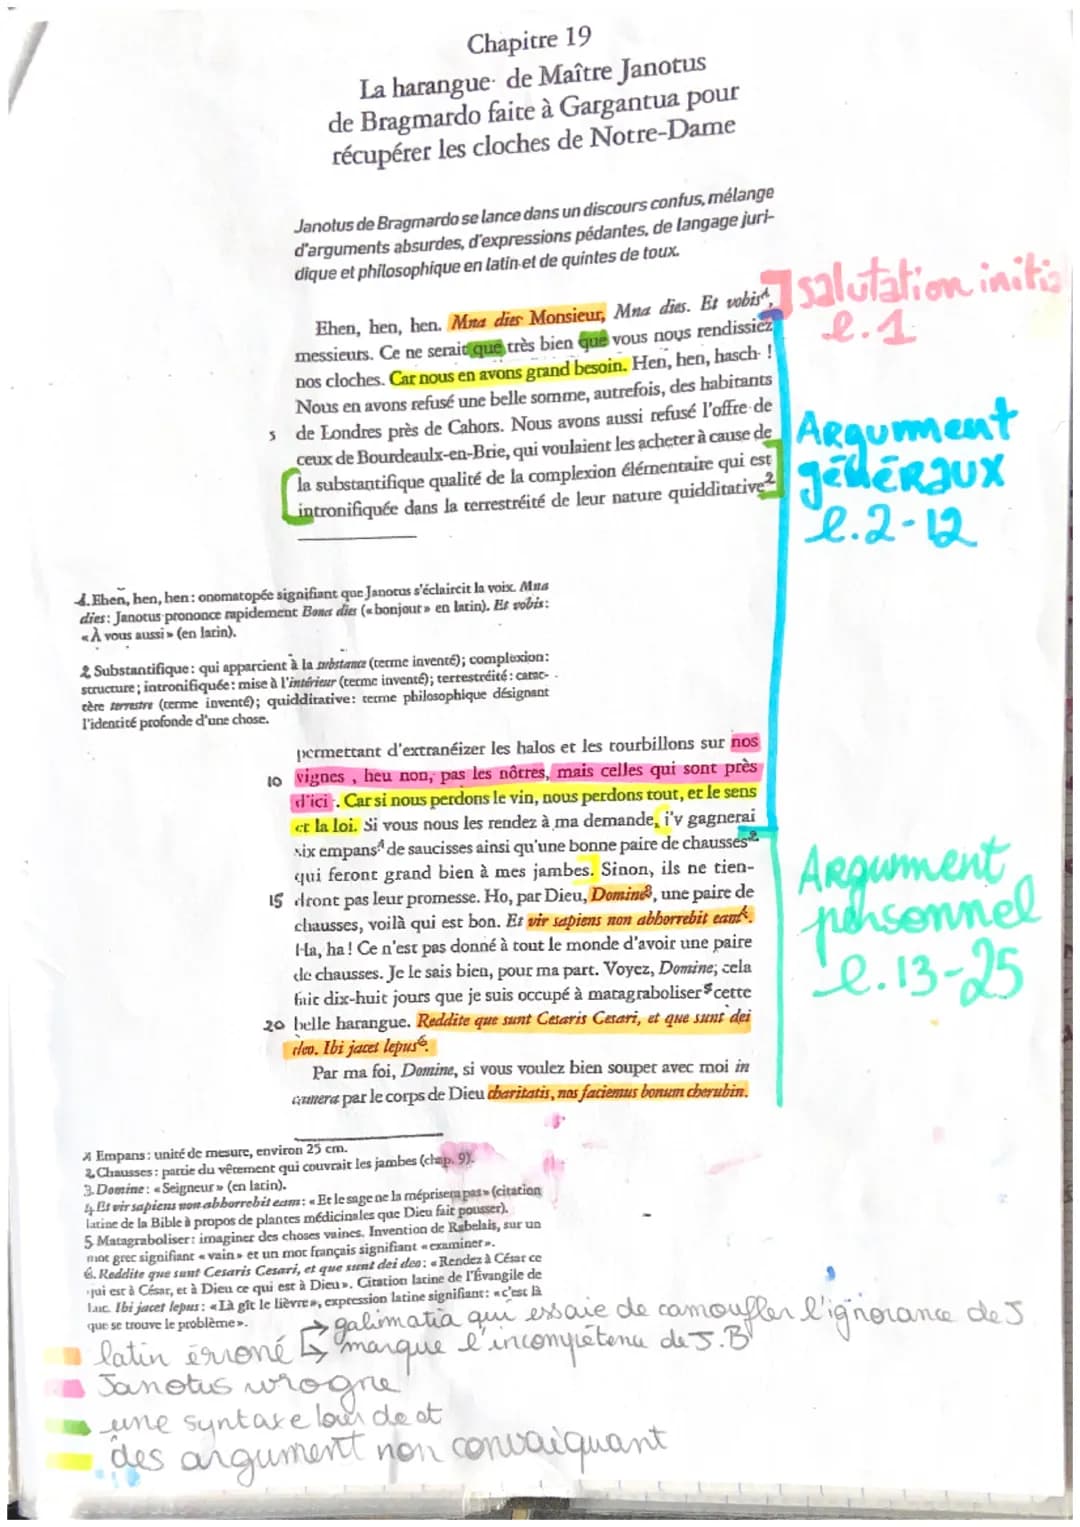 Chapitre 19
La harangue de Maître Janotus
de Bragmardo faite à Gargantua pour
récupérer les cloches de Notre-Dame
Janotus de Bragmardo se lance dans un discours confus, mélange
d'arguments absurdes, d'expressions pédantes, de langage juri-
dique et philosophique en latin et de quintes de toux.
salutation initia
l.1
Ehen, hen, hen. Mna dies Monsieur, Mna dies. Et vobis1,
messieurs. Ce ne serait que très bien que vous nous rendissiez
nos cloches. Car nous en avons grand besoin. Hen, hen, hasch !
Nous en avons refusé une belle somme, autrefois, des habitants
5 de Londres près de Cahors. Nous avons aussi refusé l'offre de
ceux de Bourdeaulx-en-Brie, qui voulaient les acheter à cause de
la substantifique qualité de la complexion élémentaire qui est
intronifiquée dans la terrestréité de leur nature quidditative2
Argument
généraux
l.2-12
1. Ehen, hen, hen: onomatopée signifiant que Janotus s'éclaircit la voix. Mna
dies: Janotus prononce rapidement Bona dies («bonjour» en latin). Et vobis:
«À vous aussi» (en latin).
2 Substantifique: qui appartient à la substance (terme inventé); complexion:
structure; intronifiquée: mise à l'intérieur (terme inventé); terrestréité: carac-
tère terrestre (terme inventé); quidditative: terme philosophique désignant
l'identité profonde d'une chose.
permettant d'extranéizer les halos et les tourbillons sur nos
10 vignes, heu non, pas les nôtres, mais celles qui sont près
d'ici. Car si nous perdons le vin, nous perdons tout, et le sens
et la loi. Si vous nous les rendez à ma demande, j'y gagnerai
six empans1 de saucisses ainsi qu'une bonne paire de chausses2
qui feront grand bien à mes jambes. Sinon, ils ne tien-
15 dront pas leur promesse. Ho, par Dieu, Domine3, une paire de
chausses, voilà qui est bon. Et vir sapiens non abhorrebit eam4.
Ha, ha! Ce n'est pas donné à tout le monde d'avoir une paire
de chausses. Je le sais bien, pour ma part. Voyez, Domine; cela
fait dix-huit jours que je suis occupé à matagraboliser5 cette
20 belle harangue. Reddite que sunt Cesaris Cesari, et que sunt dei
deo. Ibi jacet lepus6.
Par ma foi, Domine, si vous voulez bien souper avec moi in
camera par le corps de Dieu charitatis, nos faciemus bonum cherubin.
Argument
personnel
l.13-25
1 Empans: unité de mesure, environ 25 cm.
2 Chausses: partie du vêtement qui couvrait les jambes (chap. 9).
3. Domine: «Seigneur» (en latin).
4 Et vir sapiens non abhorrebit eam: «Et le sage ne la méprisera pas» (citation
latine de la Bible à propos de plantes médicinales que Dieu fait pousser).
5 Matagraboliser: imaginer des choses vaines. Invention de Rabelais, sur un
mot grec signifiant «vain» et un mot français signifiant «examiner».
6. Reddite que sunt Cesaris Cesari, et que sunt dei deo: «Rendez à César ce
qui est à César, et à Dieu ce qui est à Dieu». Citation latine de l'Évangile de
Luc. Ibi jacet lepus: «Là gît le lièvre», expression latine signifiant: «c'est là
que se trouve le problème».
→ galimatia qui essaie de camoufler l'ignorance de J
latin érroné → marque l'incompétence de J.B
Janotus ivrogne
une syntaxe lourde et
des argument non convaiquant